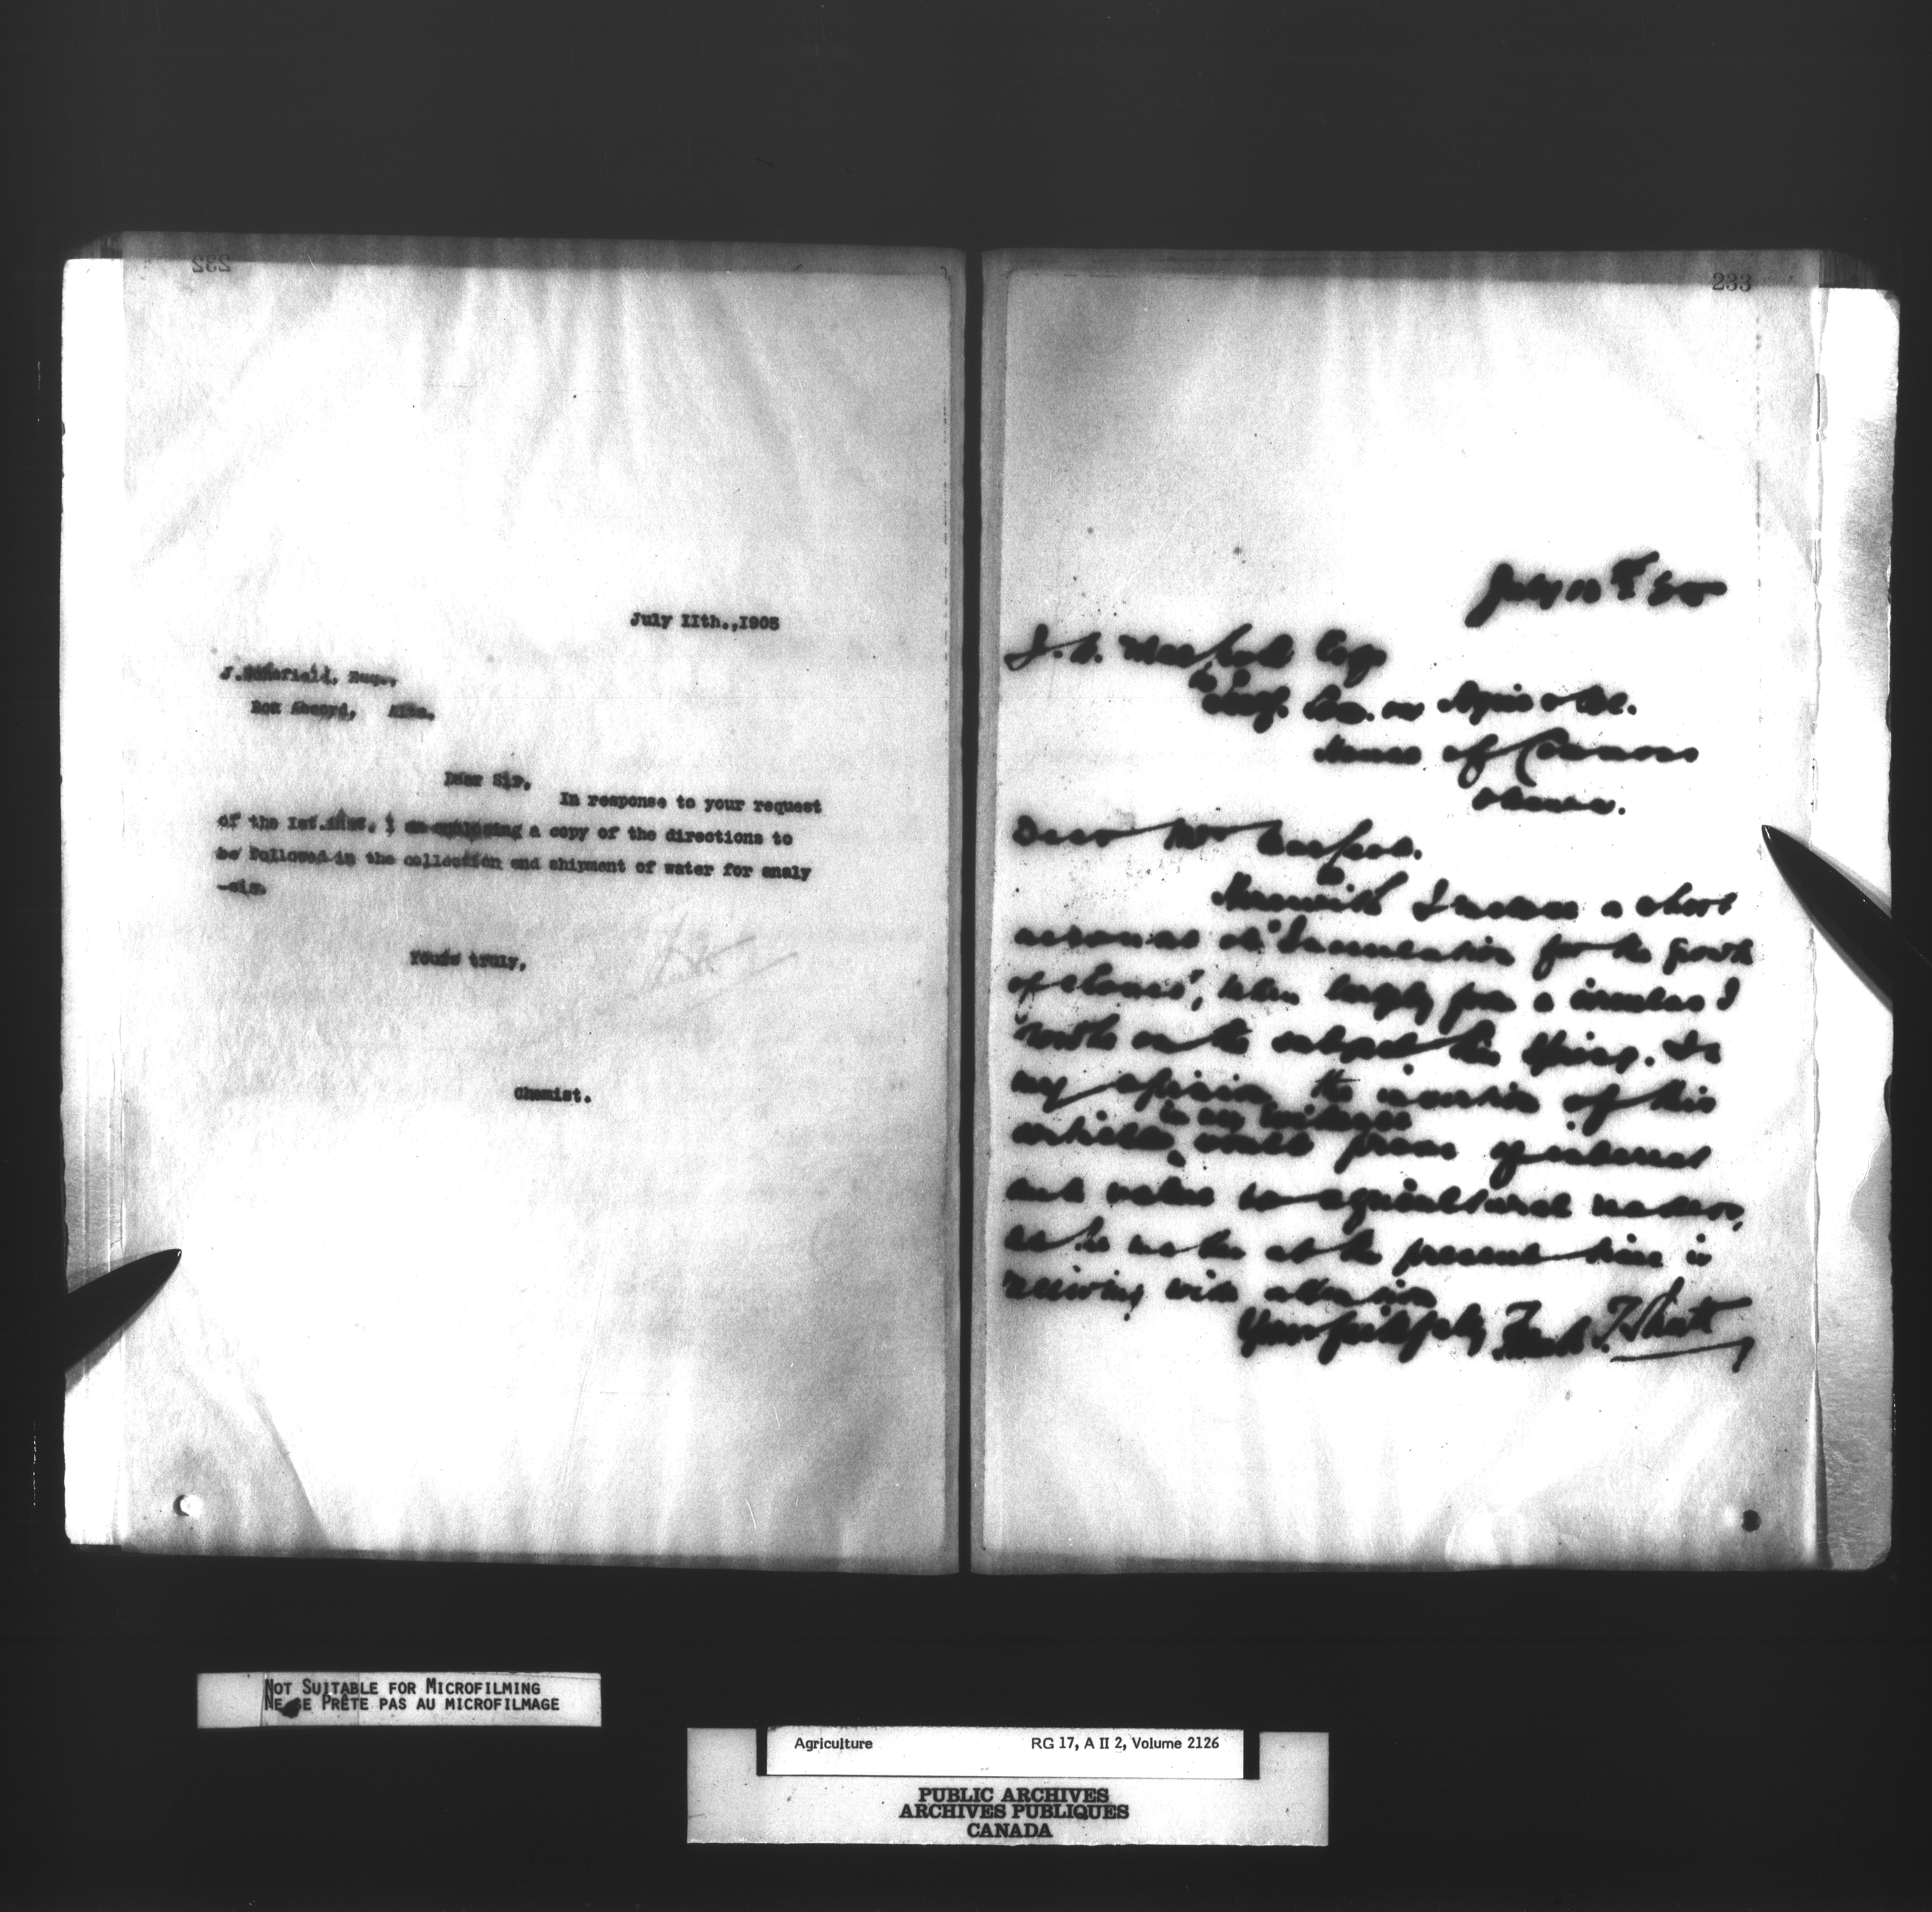 232
July IIth.,1905
Esq.,
Dear Sir,
In response to your request
of the Ist.inst. I am enclosing a copy of the directions to
be followed in the collection and shipment of water for analy
-sis.
Yours truly,
Chemist.
233
July
J. Esq
House of Commons
Ottawa.
Dear Mr
Herewith I enclose a short
account of "Inoculation for the growth
of Clovers", taken largely from a circular I
wrote on the subject this Spring. In
my opinion the insertion of this
article would prove of interest
and value to agricultural readers,
as the matter at the present time is
receiving wide attention
Yours faithfully Frank T. Shutt
NOT SUITABLE FOR MICROFILMING
NE SE PRÊTE PAS AU MICROFILMAGE
Agriculture RG 17, A II 2, Volume 2126
PUBLIC ARCHIVES
ARCHIVES PUBLIQUES
CANADA